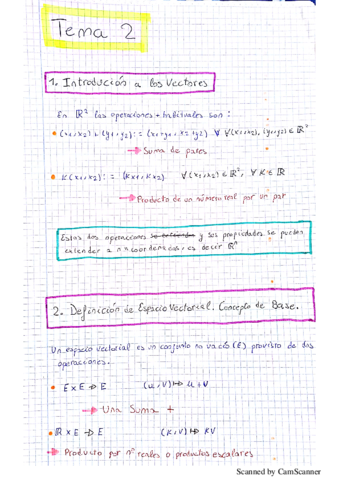 Tema 2
1. Introducción a los Vectores
En ℝ² las operaciones + habituales son:
• (x₁,x₂)+(y₁,y₂):=(x₁+y₁, x₂+y₂) ∀ (x₁,x₂), (y₁,y₂) ∈ ℝ²
→ Suma de pares
• K(x₁,x₂):=(Kx₁,Kx₂). ∀(x₁,x₂) ∈ ℝ², ∀ K ∈ ℝ
→ Producto de un número real por un par
Estas dos operaciones y sus propiedades se pueden
extender a n coordenadas, es decir ℝⁿ
2. Definición de Espacio Vectorial. Concepto de Base.
Un espacio vectorial es un conjunto no vacío (E) provisto de dos
operaciones.
• E×E → E (u,v) ↦ u+v
→ Una Suma +
• ℝ×E → E (K,v) ↦ Kv
→ Producto por nº reales o productos escalares
Scanned by CamScanner